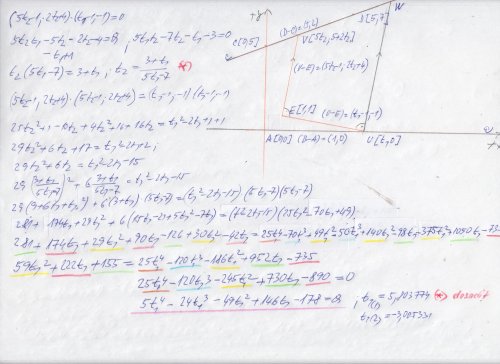 (5t₂-1, 2t₂+4)·(t₁-1,-1)=0
5t₂t₁-5t₂-2t₂-4=0, 5t₁t₂-7t₂-t₁-3=0
-t₁+1
t₂(5t₁-7)=3+t₁; t₂=3+t₁/5t₁-7 *)
(5t₂-1, 2t₂+4)·(5t₂-1, 2t₂+4)=(t₁-1,-1)(t₁-1,-1)
25t₂²+1-10t₂+4t₂²+16+16t₂=t₁²-2t₁+1+1
29t₂²+6t₂+17=t₁²-2t₁+2;
29t₂²+6t₂=t₁²-2t₁-15
29(3+t₁/5t₁-7)²+6 3+t₁/5t₁-7=t₁²-2t₁-15
29(9+6t₁+t₁²)+6(3+t₁)(5t₁-7)=(t₁²-2t₁-15)(5t₁-7)(5t₁-7)
281+174t₁+29t₁²+6(15t₁-21+5t₁²-7t₁)=(t₁²-2t₁-15)(25t₁²-70t₁+49)
281+174t₁+29t₁²+90t₁-126+30t₁²-42t₁=25t₁⁴-70t₁³+49t₁²-50t₁³+140t₁²-98t₁-375t₁²+1050t₁-735
59t₁²+222t₁+155=25t₁⁴-120t₁³-186t₁²+952t₁-735
25t₁⁴-120t₁³-245t₁²+730t₁-890=0
5t₁⁴-24t₁³-49t₁²+146t₁-178=0;
t₁(1)=5,803774 *) dosadit
t₁(2)=-3,005331
+y
W
D[5,7]
(D-C)=(5,2)
C[0,5]
V[5t₂,5+2t₂]
(V-E)=(5t₂-1,2t₂+4)
E[1,1]
(U-E)=(t₁-1,-1)
A[0,0]
(B-A)=(1,0)
U[t₁,0]
+x